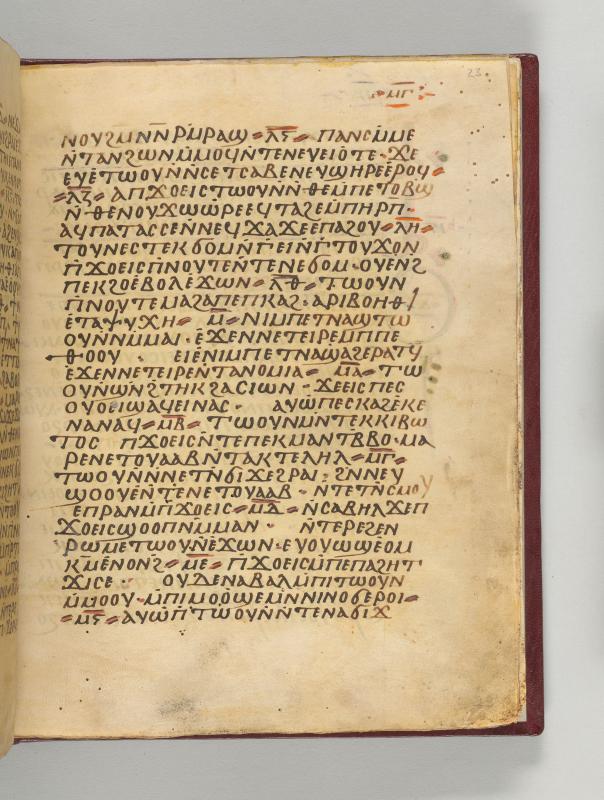 23
ⲙⲅ
ⲛⲟⲩϩⲙⲛⲛⲣⲙⲣⲁϣ ⲗⲋ ⲡⲁⲛⲥⲙⲙⲉ
ⲛⲧⲁⲛϩⲱⲛⲙⲙⲟϥⲛⲧⲉⲛⲉⲩⲉⲓⲟⲧⲉ · ϫⲉ
ⲉⲩⲉⲧⲱⲟⲩⲛⲛⲥⲉⲧⲥⲁⲃⲉⲛⲉⲩϣⲏⲣⲉ
ⲗⲍ ⲁⲡϫⲟⲉⲓⲥⲧⲱⲟⲩⲛⲛⲑⲉⲙⲡⲉⲧⲟⲃϣ
ⲛⲑⲉⲛⲟⲩϫⲱⲱⲣⲉⲉϥⲧⲁϩⲉⲙⲡⲏⲣⲡ ·
ⲁϥⲡⲁⲧⲁⲥⲥⲉⲛⲛⲉϥϫⲁϫⲉⲉⲡⲁϩⲟⲩ ⲗⲏ
ⲧⲟⲩⲛⲉⲥⲧⲉⲕϭⲟⲙⲛⲅⲉⲓⲛⲅⲧⲟⲩϫⲟⲛ
ⲡϫⲟⲉⲓⲥⲡⲛⲟⲩⲧⲉⲛⲧⲉⲛⲉϭⲟⲙ · ⲟⲩⲉⲛϩ
ⲡⲉⲕϩⲟⲉⲃⲟⲗⲉϫⲱⲛ ⲗⲑ ⲧⲱⲟⲩⲛ
ⲡⲛⲟⲩⲧⲉⲙⲁϩⲁⲡⲡⲉⲕϩⲁⲡ · ⲁⲣⲓⲃⲟⲏⲑⲓ
ⲉⲧⲁⲯⲩⲭⲏ ⲙ ⲛⲓⲙⲡⲉⲧⲛⲁϣⲧⲱ
ⲟⲩⲛⲛⲙⲙⲁⲓ · ⲉϫⲉⲛⲛⲉⲧⲉⲓⲣⲉⲙⲡⲡⲉ
ⲑⲟⲟⲩ · ⲉⲓⲉⲛⲓⲙⲡⲉⲧⲛⲁϣⲁϩⲉⲣⲁⲧϥ
ⲉϫⲉⲛⲛⲉⲧⲉⲓⲣⲉⲛⲧⲁⲛⲟⲙⲓⲁ ⲙⲁ ⲧⲱ
ⲟⲩⲛⲛⲱⲛϩⲧⲏⲕϩⲁⲥⲓⲱⲛ · ϫⲉⲉⲓⲥⲡⲉⲥ
ⲟⲩⲟⲉⲓϣⲁϥⲉⲓⲛⲁⲥ · ⲁⲩⲱⲡⲉⲥⲕⲁϩⲉⲕⲉ
ⲛⲁⲛⲁϥ ⲙⲃ ⲧⲱⲟⲩⲛⲙⲛⲧⲉⲕⲕⲓⲃⲱ
ⲧⲟⲥ ⲡϫⲟⲉⲓⲥⲛⲧⲉⲡⲉⲕⲙⲁⲛⲧⲃⲃⲟ · ⲙⲁ
ⲣⲉⲛⲉⲧⲟⲩⲁⲁⲃⲛⲧⲁⲕⲧⲉⲗⲏⲗ ⲙⲅ
ⲧⲱⲟⲩⲛⲛⲛⲉⲧⲛϭⲓϫⲉϩⲣⲁⲓ · ϩⲛⲛⲉⲩ
ϣⲟⲟⲩⲉⲛⲧⲉⲛⲉⲧⲟⲩⲁⲁⲃ · ⲛⲧⲉⲧⲛⲥⲙⲟⲩ
ⲉⲡⲣⲁⲛⲙⲡϫⲟⲉⲓⲥ ⲙⲇ ⲛⲥⲁⲃⲏⲗϫⲉⲡ
ϫⲟⲉⲓⲥϣⲟⲟⲡⲛⲙⲙⲁⲛ · ⲛⲧⲉⲣⲉϩⲉⲛ
ⲣⲱⲙⲉⲧⲱⲟⲩⲛⲉϫⲱⲛ · ⲉⲩⲟⲩⲱϣⲉⲟⲙ
ⲕⲙⲉⲛⲟⲛϩ ⲙⲉ ⲡϫⲟⲉⲓⲥⲙⲡⲉⲡⲁϩⲏⲧ
ϫⲓⲥⲉ · ⲟⲩⲇⲉⲛⲁⲃⲁⲗⲙⲡⲓⲧⲱⲟⲩⲛ
ⲙⲙⲟⲟⲩ · ⲙⲡⲓⲙⲟⲟϣⲉⲙⲛⲛⲓⲛⲟϭⲉⲣⲟⲓ
ⲙⲋ ⲁⲩⲱⲡⲧⲱⲟⲩⲛⲛⲧⲉⲛⲁϭⲓϫ